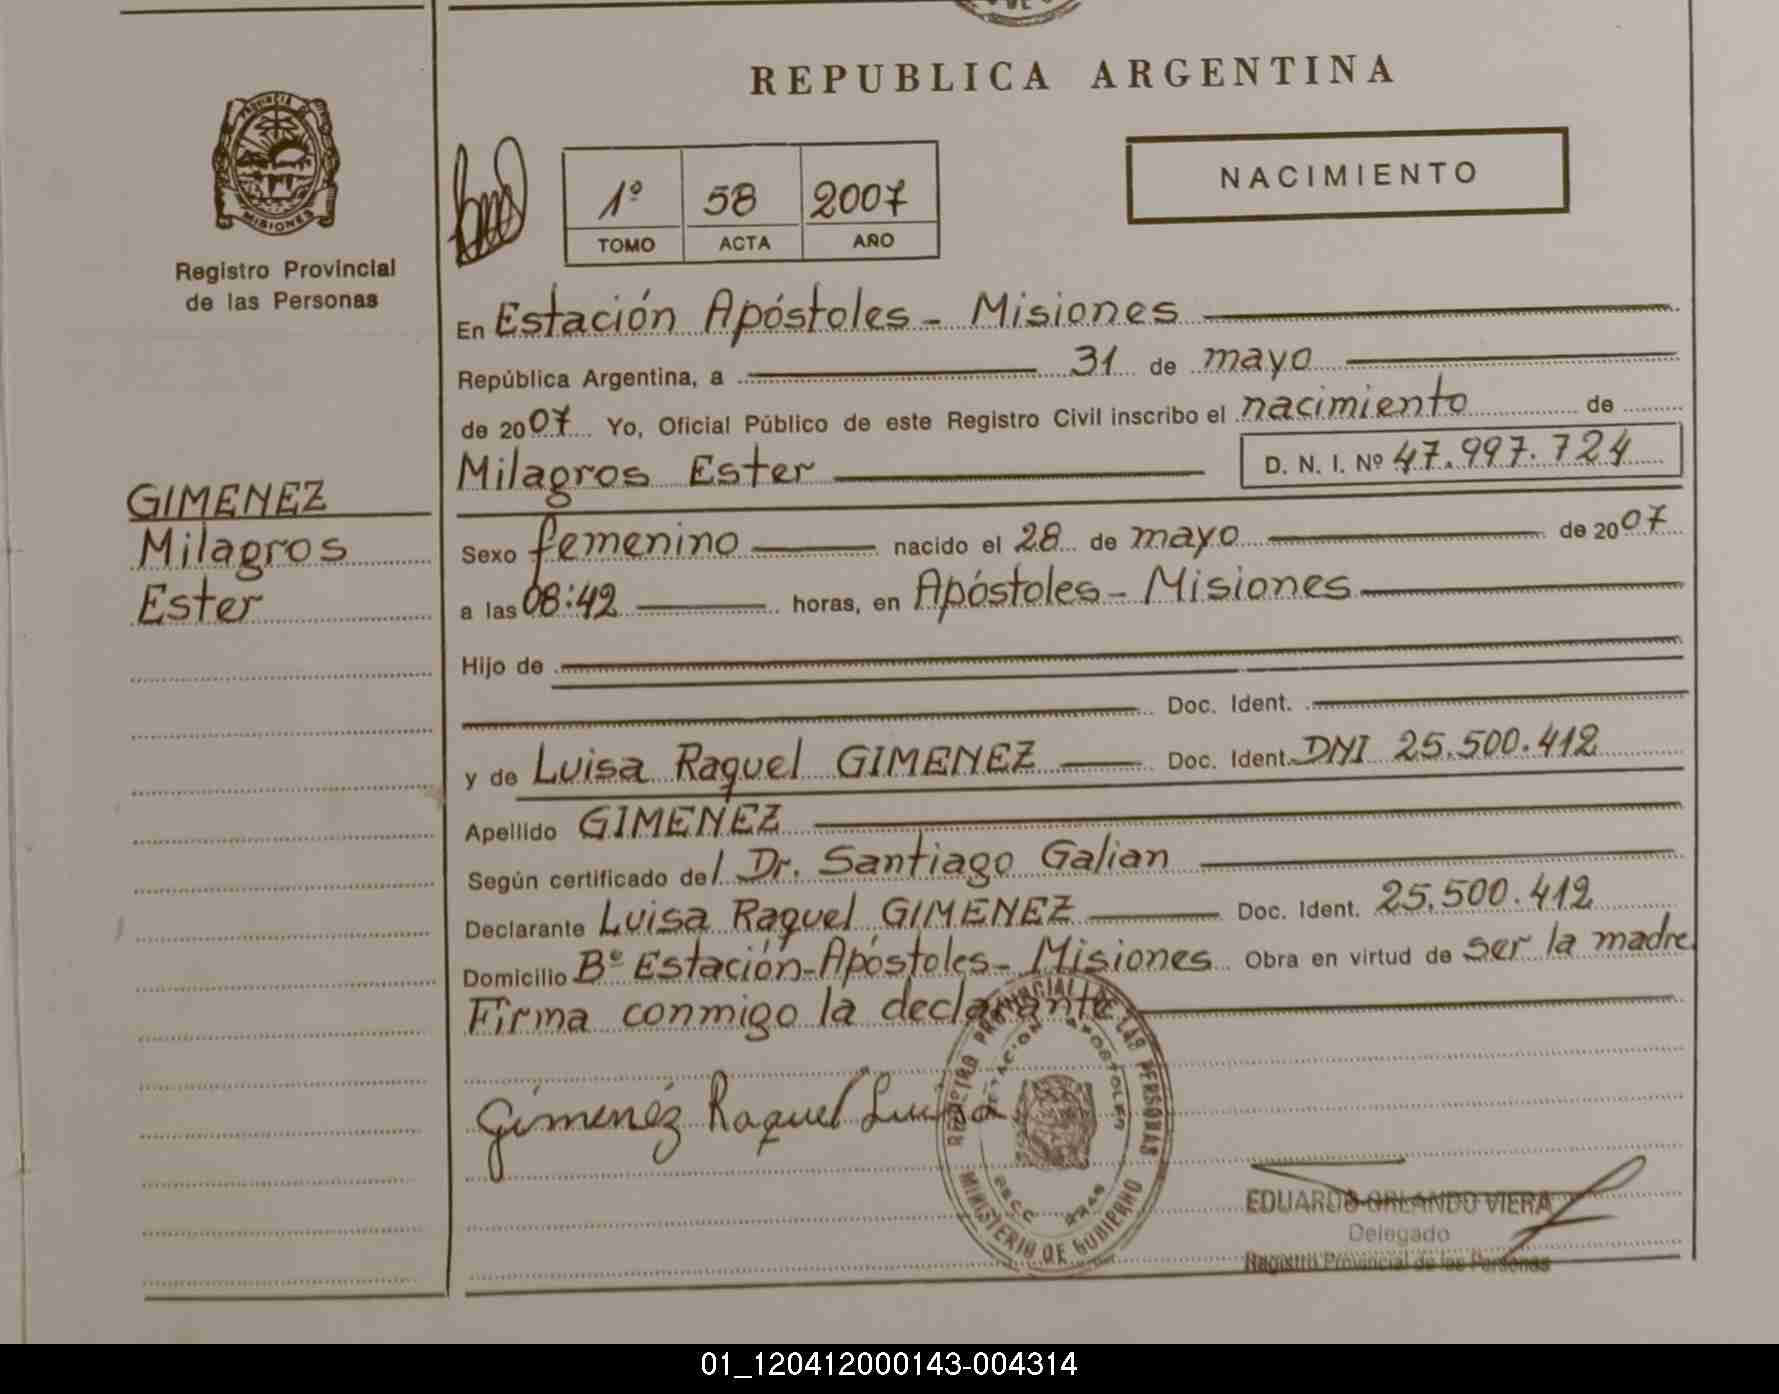 REPUBLICA ARGENTINA
PROVINCIA DE
MISIONES
Registro Provincial
de las Personas
1º 58 2007
TOMO ACTA AÑO
NACIMIENTO
En Estación Apóstoles - Misiones
República Argentina, a 31 de mayo
de 2007 Yo, Oficial Público de este Registro Civil inscribo el nacimiento de
Milagros Ester D. N. I. Nº 47.997.724
GIMENEZ
Milagros
Ester
Sexo femenino nacido el 28 de mayo de 2007
a las 08:42 horas, en Apóstoles - Misiones
Hijo de
Doc. Ident.
y de Luisa Raquel GIMENEZ Doc. Ident. DNI 25.500.412
Apellido GIMENEZ
Según certificado del Dr. Santiago Galian
Declarante Luisa Raquel GIMENEZ Doc. Ident. 25.500.412
Domicilio Bº Estación-Apóstoles-Misiones Obra en virtud de ser la madre
Firma conmigo la declarante
Gimenéz Raquel Luisa
REGISTRO PROVINCIAL DE LAS PERSONAS
ESTACION APOSTOLES
MINISTERIO DE GOBIERNO
EDUARDO ORLANDO VIERA
Delegado
Registro Provincial de las Personas
01_120412000143-004314